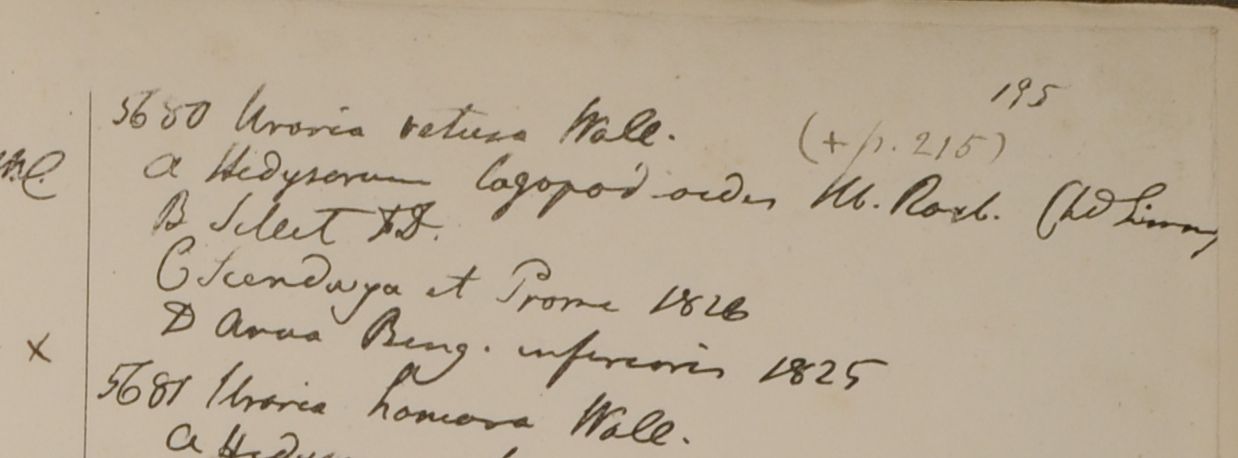 195
5680 Uraria retusa Wall.
(+ p. 215)
a Hedysarum lagopodioides Hb. Roxb. (hd Linn)
B Sillet
C Segendwya et Prome 1826
D Arva Beng. inferioris 1825
5681 Uraria hamosa Wall.
a
x